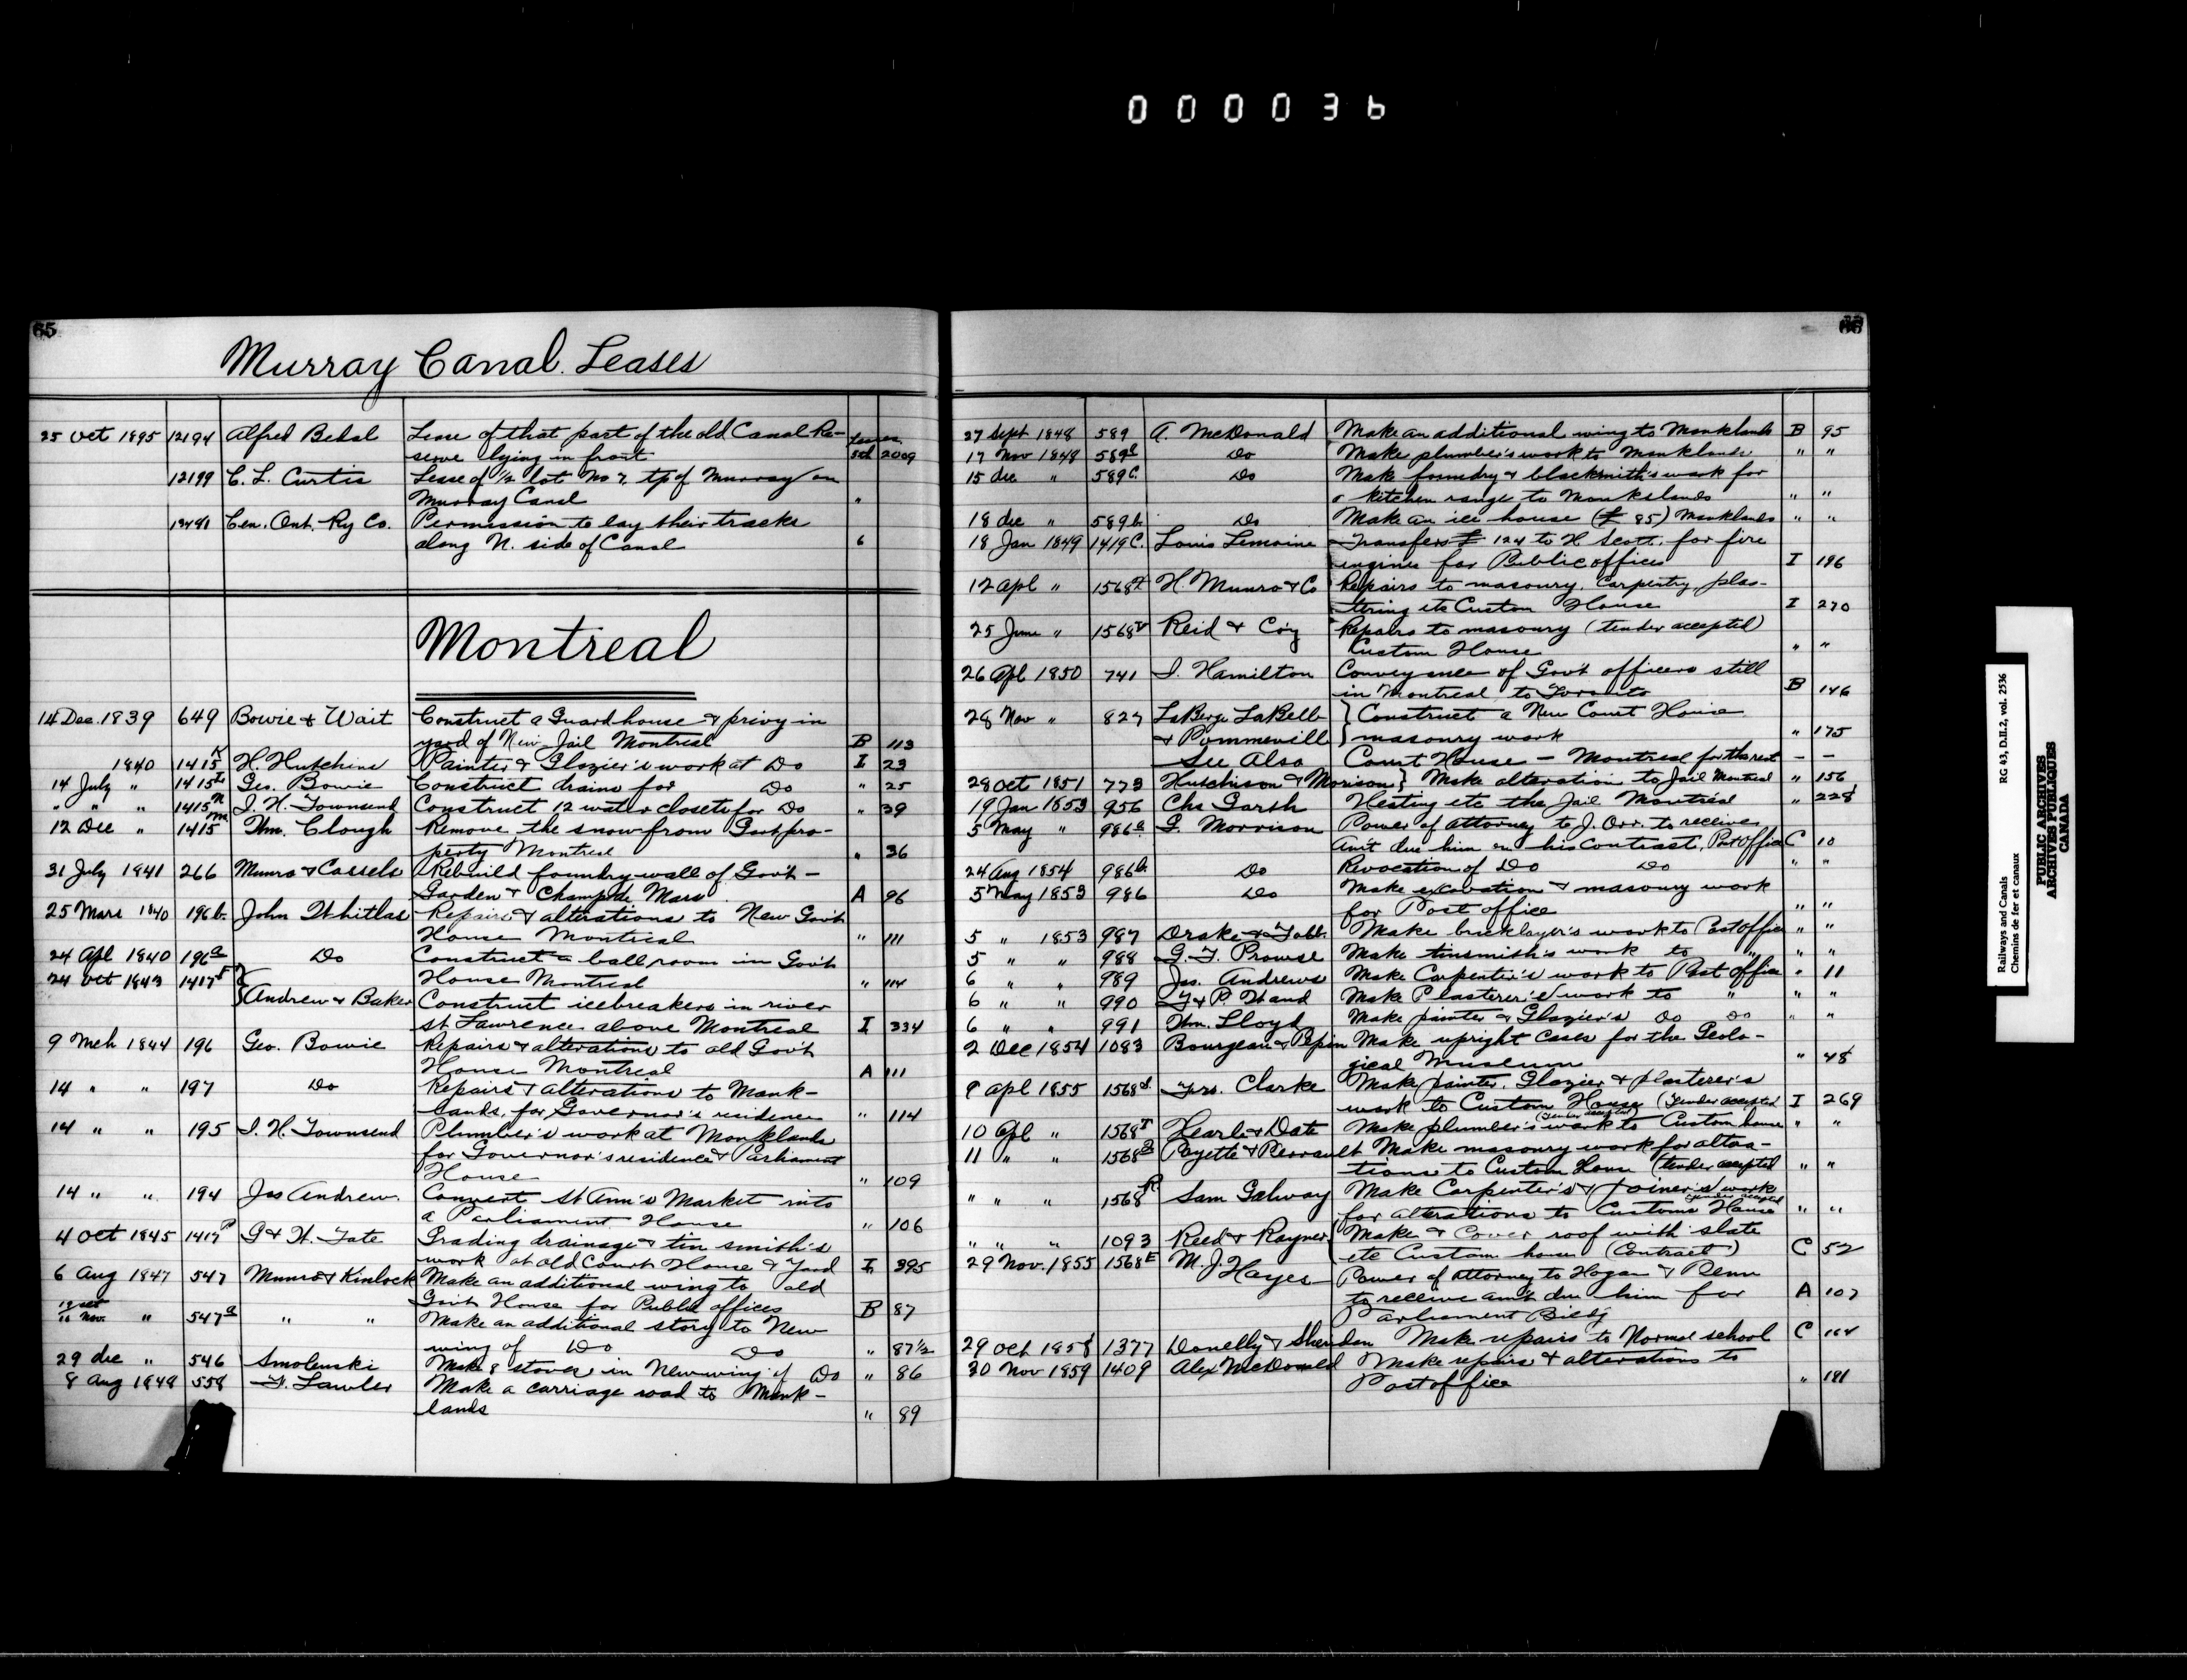 000036
65
Murray Canal Leases
25 Oct 1895 12194 Alfred Bedal Lease of that part of the old Canal Re-
serve lying in front Leases 5th 2009
12199 C. L. Curtis Lease of 1/2 lot No 7, tp of Murray on
Murray Canal "
Cen. Ont. Ry Co. Permission to lay their tracks
along N. side of Canal 6
Montreal
14 Dec. 1839 649 Bowie & Wait Construct a Guard house & privy in
yard of New Jail Montreal B 113
1840 1415K H. Hutchins Painter & Glazier's work at Do I 23
14 July " 1415L Geo. Bowie Construct drains for Do " 25
" " " 1415M J. H. Townsend Construct 12 water closets for Do " 39
12 Dec " 1415m Thm. Clough Remove the snow from Govt pro-
perty Montreal " 36
31 July 1841 266 Munro & Cassels Rebuild foundry wall of Gov't -
Garden & Champ de Mars A 96
25 Mars 1840 196b John Whitlas Repairs & alterations to New Gov't
House Montreal " 111
24 Apl 1840 196a Do Construct a ball room in Gov't
House Montreal " 114
24 Oct 1843 1417 Andrew & Baker Construct icebreakers in river
St Lawrence above Montreal I 334
9 Mch 1844 196 Geo. Bowie Repairs & alterations to old Gov't
House Montreal A 111
14 " " 197 Do Repairs & alterations to Monk-
lands, for Governor's residence " 114
14 " " 195 J. H. Townsend Plumber's work at Monklands
for Governor's residence & Parliament
House " 109
14 " " 194 Jas Andrew. Convert St Ann's Market into
a Parliament House " 106
4 Oct 1845 1417P G & W. Tate Grading drainage & tin smith's
work at old Court House & Yard I 395
6 Aug 1847 547 Munro & Kinlock Make an additional wing to old
Gov't House for Public offices B 87
16 Nov. " 547a " " Make an additional story to New
wing of Do Do " 87 1/2
29 dec " 546 Smolenski Make 8 stoves in New wing of Do " 86
8 Aug 1848 558 F. Lawler Make a carriage road to Monk-
lands " 89
66
27 Sept 1848 589 A. McDonald Make an additional wing to Monklands B 95
17 Nov 1848 589 Do Make plumber's work to Monklands " "
15 dec " 589c Do Make foundry & blacksmith's work for
a kitchen range to Monkslands " "
18 dec " 589b Do Make an ice house (£ 85) Monklands " "
18 Jan 1849 1419C. Louis Lemoine Transfers £ 124 to H Scott. for fire
engines for Public offices I 196
12 apl " 1568 H. Munro & Co Repairs to masonry, Carpentry, plas-
tering etc Custom House I 270
25 June " 1568 Reid & Coy Repairs to masonry (tender accepted)
Custom House " "
26 Apl 1850 741 J. Hamilton Conveyance of Gov't officers still
in Montreal to Toronto B 146
28 Nov " 827 LaBerge LaBelle } Construct a New Court House
& Pommeville } masonry work " 175
See Also Court House - Montreal for the rest - -
28 Oct 1851 773 Hutchison & Morison } Make alteration to Jail Montreal " 156
19 Jan 1853 956 Chs Garth Heating etc the Jail Montreal " 228
5 May " 986a G. Morrison Power of attorney to J. Orr. to receive
am't due him on his contract, Post office C 10
24 Aug 1854 986b. Do Revocation of Do Do " "
5 May 1853 986 Do Make excavation & masonry work
for Post office " "
5 " 1853 987 Drake & Tabb Make bricklayer's work to Post office " "
5 " " 988 G. F. Prowse Make tinsmith's work to " " "
6 " " 989 Jas. Andrews Make Carpenter's work to Post office " 11
6 " " 990 T & P. Hand Make Plasterer's work to " " "
6 " " 991 Thm. Lloyd Make painter & Glazier's Do Do " "
2 Dec 1854 1083 Bourgeau & Pepin Make upright Cases for the Geolo-
gical Museum " 48
9 apl 1855 1568 Frs. Clarke Make painter, Glazier & plasterer's
work to Custom House (Tender accepted I 269
10 Apl " 1568 Hearle & Date Make plumber's work to Custom house (Tender accepted) " "
11 " " 1568 Payette & Perrault Make masonry work for altera-
tions to Custom House (tender accepted " "
" " " 1568R Sam Galway Make Carpenter's & Joiner's work
for alterations to Customs House tender accepted " "
" " " 1093 Reed & Rayner Make & Cover roof with slate
etc Custom house (Contract) C 52
29 Nov. 1855 1568E M. J. Hayes Power of attorney to Hogan & Penn
to receive am't due him for A 107
Parliament Bldg
29 Oct 1858 1377 Donelly & Sheridan Make repairs to Normal school C 164
30 Nov 1859 1409 Alex McDonald Make repairs & alterations to
Post office " 181
Railways and Canals RG 43, D.II.2, vol. 2536
Chemins de fer et canaux
PUBLIC ARCHIVES
ARCHIVES PUBLIQUES
CANADA